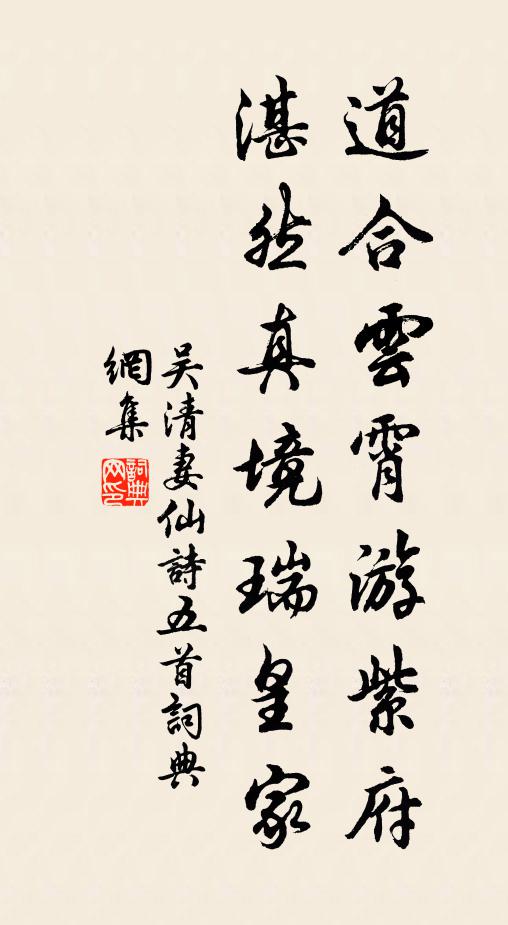 道合雲霄游紫府
湛然真境瑞皇家
吴清妻仙詩五首詞典
網集
詞典
网印